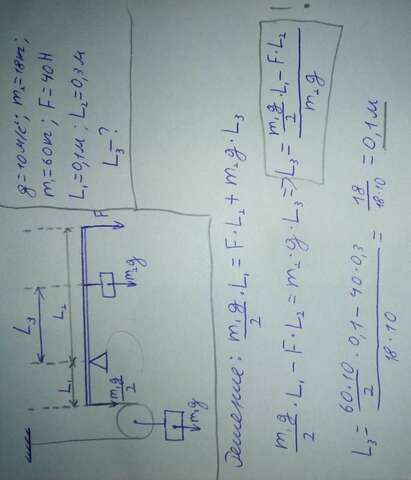 g=10 м/с²; m₂=18кг;
m₁=60кг; F=40Н
L₁=0,1м; L₂=0,3м
L₃=?
L₃
L₁ L₂
F
m₁g/2
m₂g
m₁g
Решение: m₁g/2 · L₁ = F·L₂ + m₂g·L₃
m₁g/2 · L₁ − F·L₂ = m₂·g·L₃ => L₃ = (m₁g/2 · L₁ − F·L₂)/(m₂g)
L₃ = (60·10/2 · 0,1 − 40·0,3)/(18·10) = 18/(18·10) = 0,1м